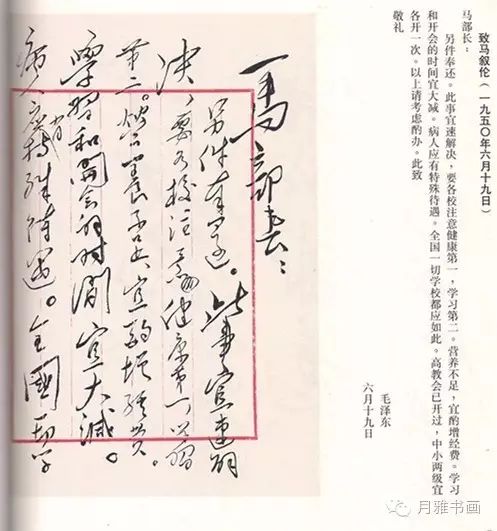 致马叙伦(一九五〇年六月十九日)
马部长:
另件奉还。此事宜速解决,要各校注意健康第一,学习第二。营养不足,宜酌增经费。学习
和开会的时间宜大减。病人应有特殊待遇。全国一切学校都应如此。高教会已开过,中小两级宜
各开一次。以上请考虑酌办。此致
敬礼
毛泽东
六月十九日
马部长:
另件奉还。此事宜速解
决,要各校注意健康第一,学習
第二。營养不足,宜酌增经费。
學習和開會的时间宜大減。
病人应有特殊待遇。全國一切学
月雅书画